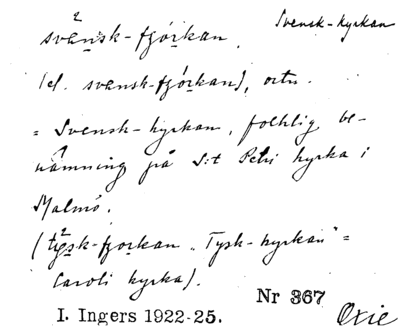 svänsk-fjórkan. Svensk-kyrkan
(el. svansk-fjórkan), ortn.
= Svensk-kyrkan, folklig be-
nämning på S:t Petri kyrka i
Malmö.
(tysk-fjorkan „Tysk-kyrkan" =
Caroli kyrka).
Nr 367
I. Ingers 1922-25. Oxie